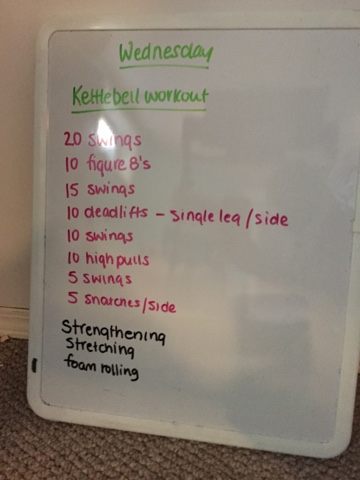 Wednesday
Kettlebell workout
20 swings
10 figure 8's
15 swings
10 deadlifts - single leg/side
10 swings
10 high pulls
5 swings
5 snatches/side
Strengthening
Stretching
foam rolling